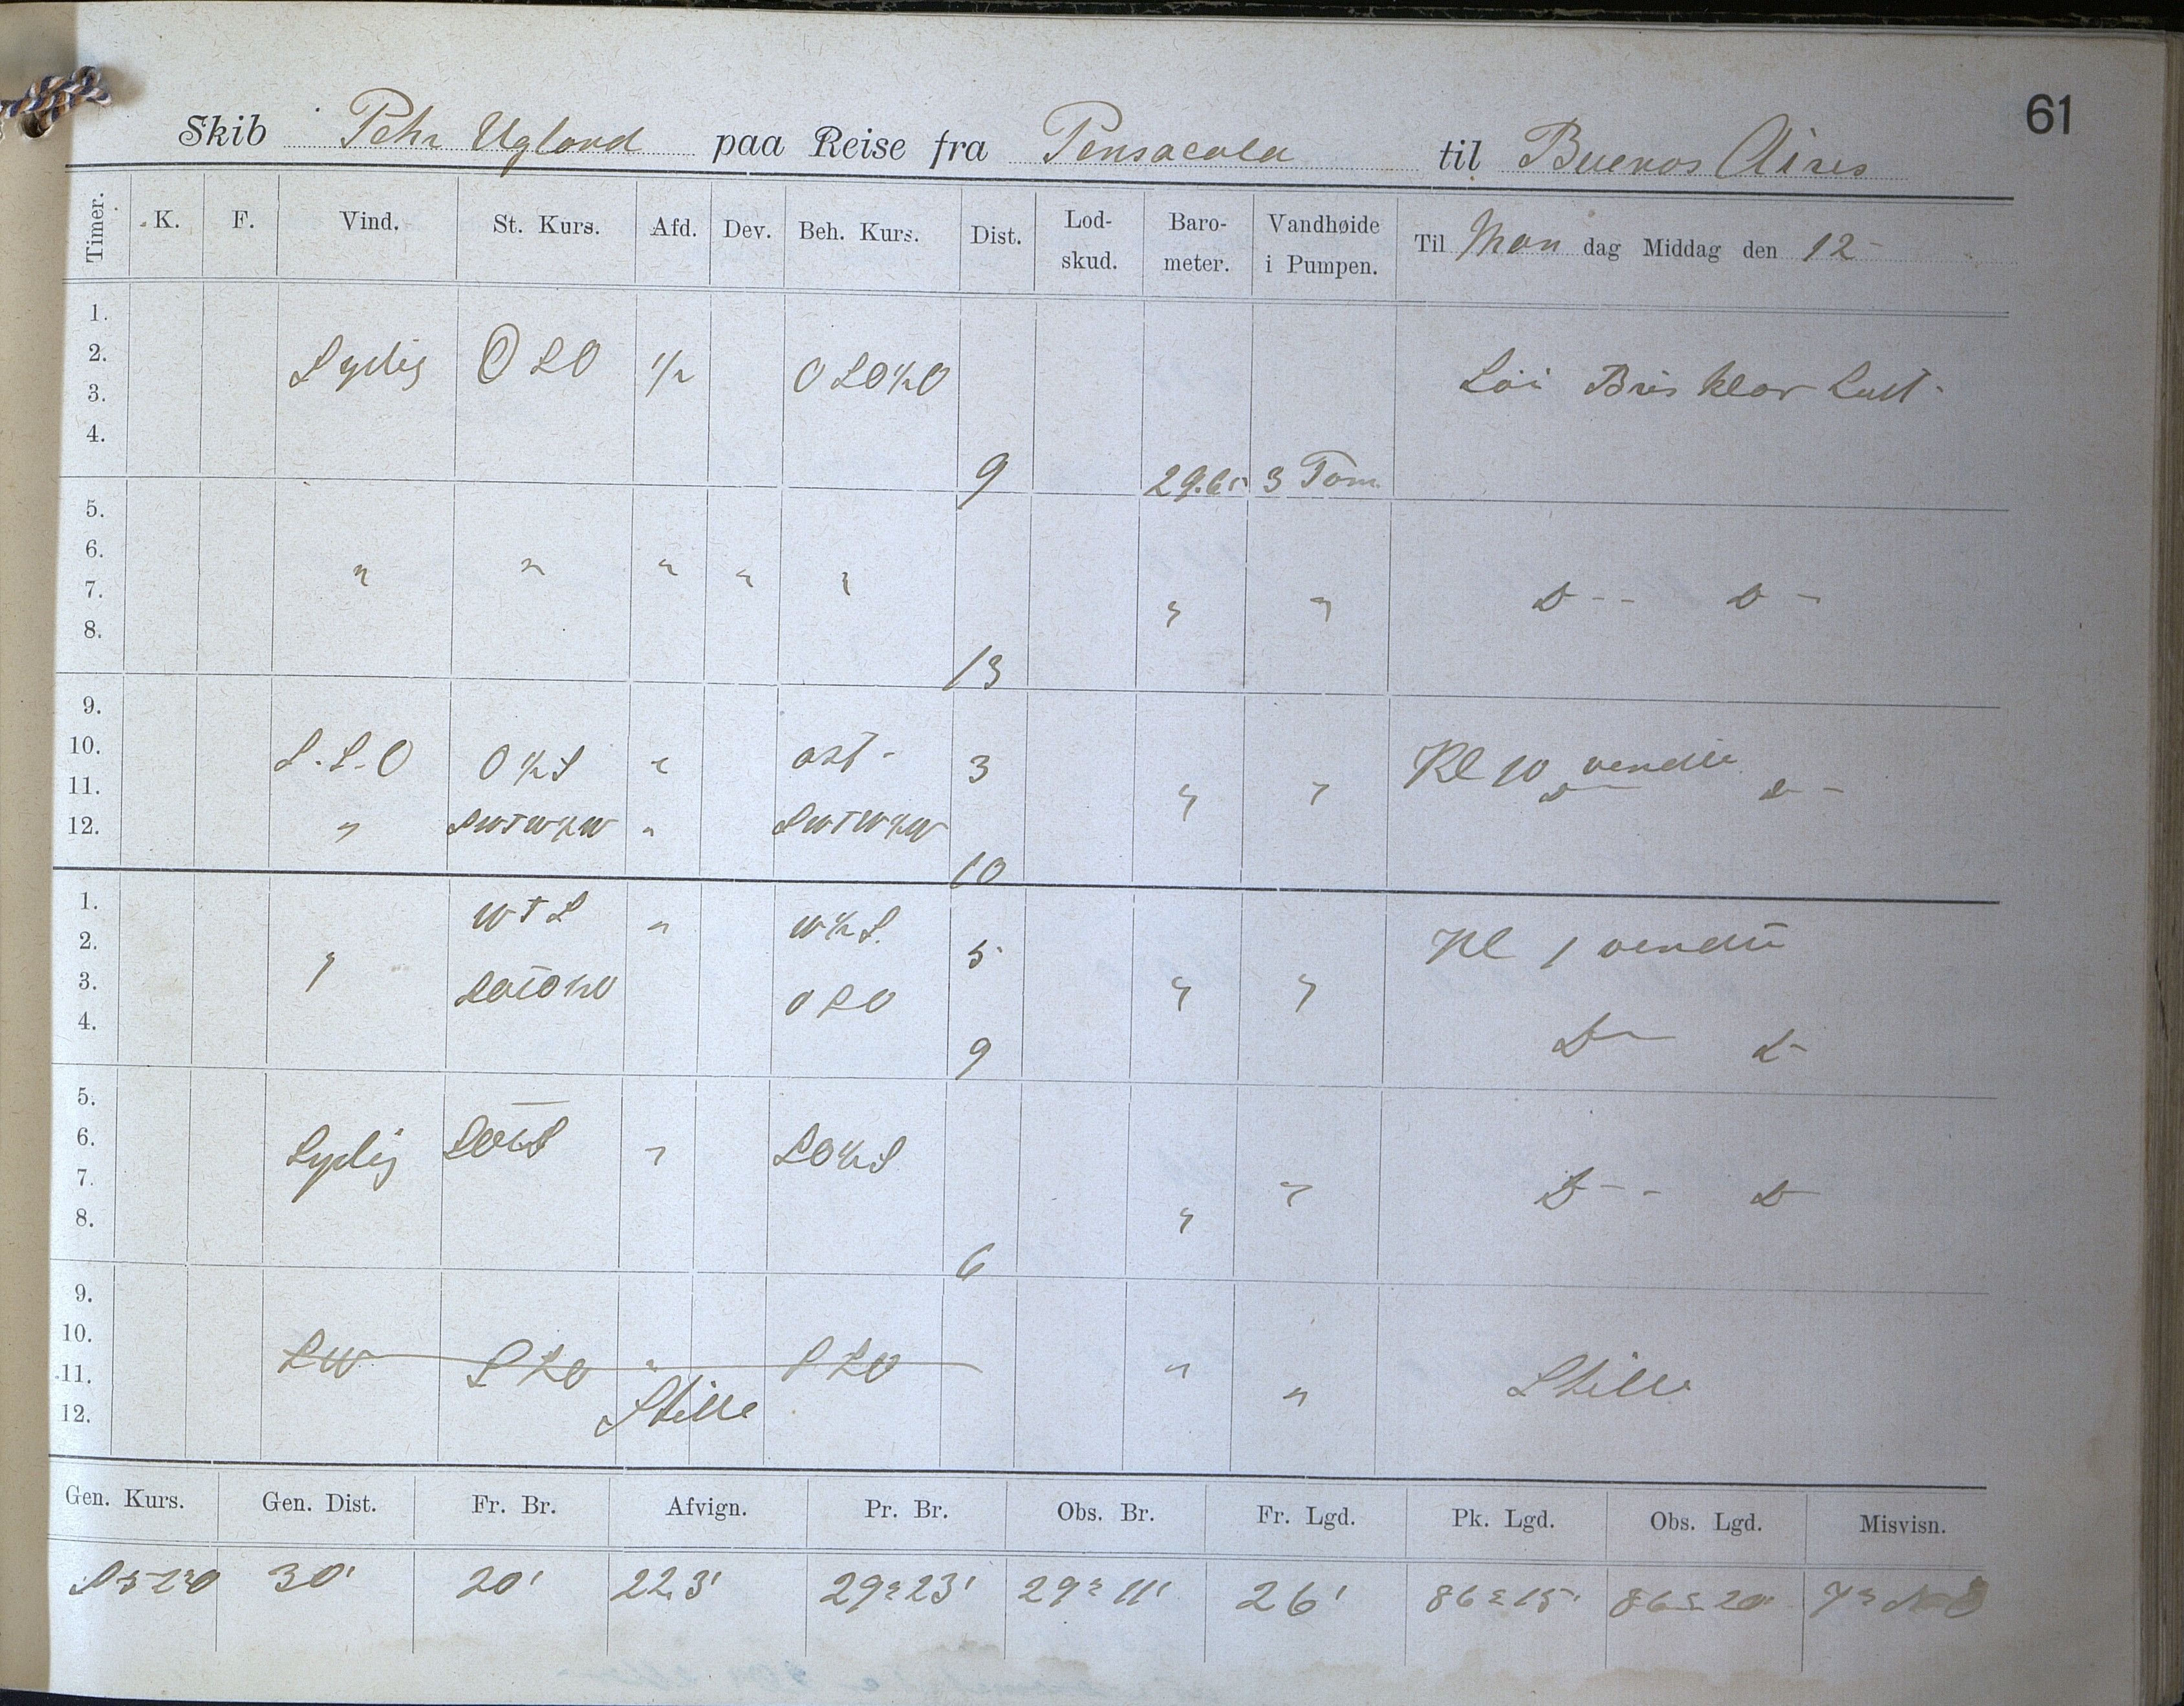 61
Skib Pehr Ugland paa Reise fra Pensacola til Buenos Aires
Timer. K. F. Vind. St. Kurs. Afd. Dev. Beh. Kurs. Dist. Lod-skud. Baro-meter. Vandhøide i Pumpen. Til Man dag Middag den 12-
1.
2. Sydlig OSO 1/2 OSO1/2O Löi Bris klar Luft-
3.
4.
9 29.65 3 Tom.
5.
6. " " " " "
7. " " D -- D -
8.
13
9.
10. S.S.O O1/2S " ost- 3 Kl 10 vendte
11. " " D - D -
12. " SWTW1/2W " SWTW1/2W
10
1. WTS " W1/2S.
2. " 5 Kl 1 vendte
3. SOTO1/2O OSO " "
4. D- D-
9
5.
6. Sydlig SOTS " SO1/2S
7. " D -- D
8. "
6
9.
10.
11. SW SSO " SSO " Stille
12. Stille "
Gen. Kurs. Gen. Dist. Fr. Br. Afvign. Pr. Br. Obs. Br. Fr. Lgd. Pk. Lgd. Obs. Lgd. Misvisn.
30' 20' 22.3' 29° 23' 29° 11' 26' 86° 15' 86° 20'